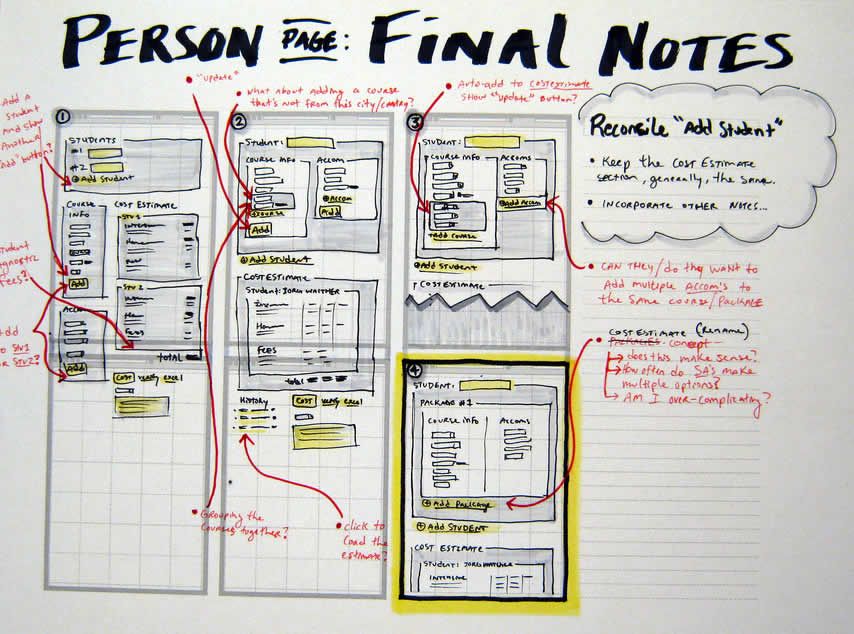 PERSON PAGE: FINAL NOTES
"Update"
What about adding a course
that's not from this city/country?
Auto-add to cost estimate
Show "Update" button?
Add a
Student
And show
Another
"Add" button?
Student
Fees?
Add
to STU1
or STU2?
1
STUDENTS
#1
#2
+ Add Student
COURSE
INFO
Add
ACCOM
Add
COST ESTIMATE
STU 1
STU 2
Fees
TOTAL
COST verify excel
2
STUDENT:
COURSE INFO
ACCOM
+ COURSE
Add
+ ACCOM
Add
+ Add Student
COST ESTIMATE
STUDENT: JORG WAITHER
FEES
total
History
COST verify excel
Grouping the
courses together?
click to
load the
estimate?
3
STUDENT:
COURSE INFO
ACCOMS
+ Add Accom
+ Add Course
+ Add Student
COST ESTIMATE
4
STUDENT:
PACKAGE #1
COURSE INFO
ACCOMS
+ Add Package
+ Add STUDENT
COST ESTIMATE
STUDENT: JORG WAITHER
INTENSIVE
Reconcile "Add Student"
• Keep the COST ESTIMATE
section, generally, the same.
• INCORPORATE OTHER NOTES...
CAN THEY/do they WANT to
Add multiple ACCOM's to
the same course/PACKAGE
COST ESTIMATE (Rename)
PACKAGES concept
does this make sense?
How often do SA's make
multiple options?
Am I over-complicating?